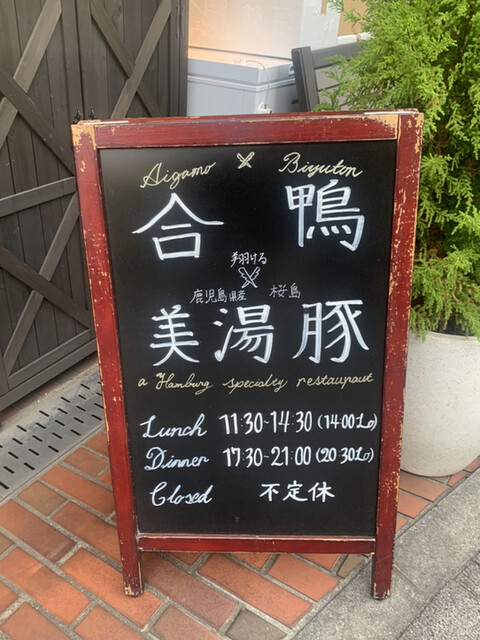 Aigamo × Biyuton
合鴨
翔ける
×
鹿児島県産 桜島
美湯豚
a Hamburg specialty restaupaut
Lunch 11:30~14:30 (14:00Lo)
Dinner 17:30~21:00 (20:30Lo)
Closed 不定休